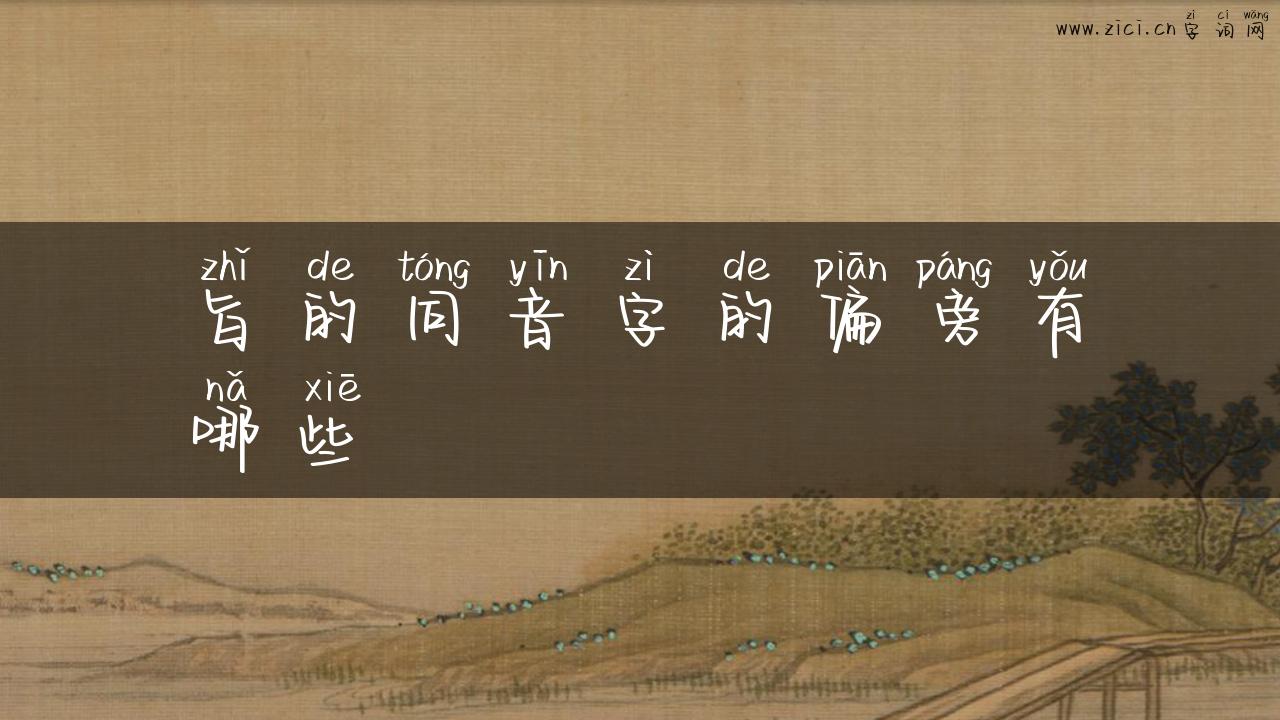 zì cí wǎng
www.zici.cn 字词网
zhǐ de tóng yīn zì de piān páng yǒu
旨的同音字的偏旁有
nǎ xiē
哪些